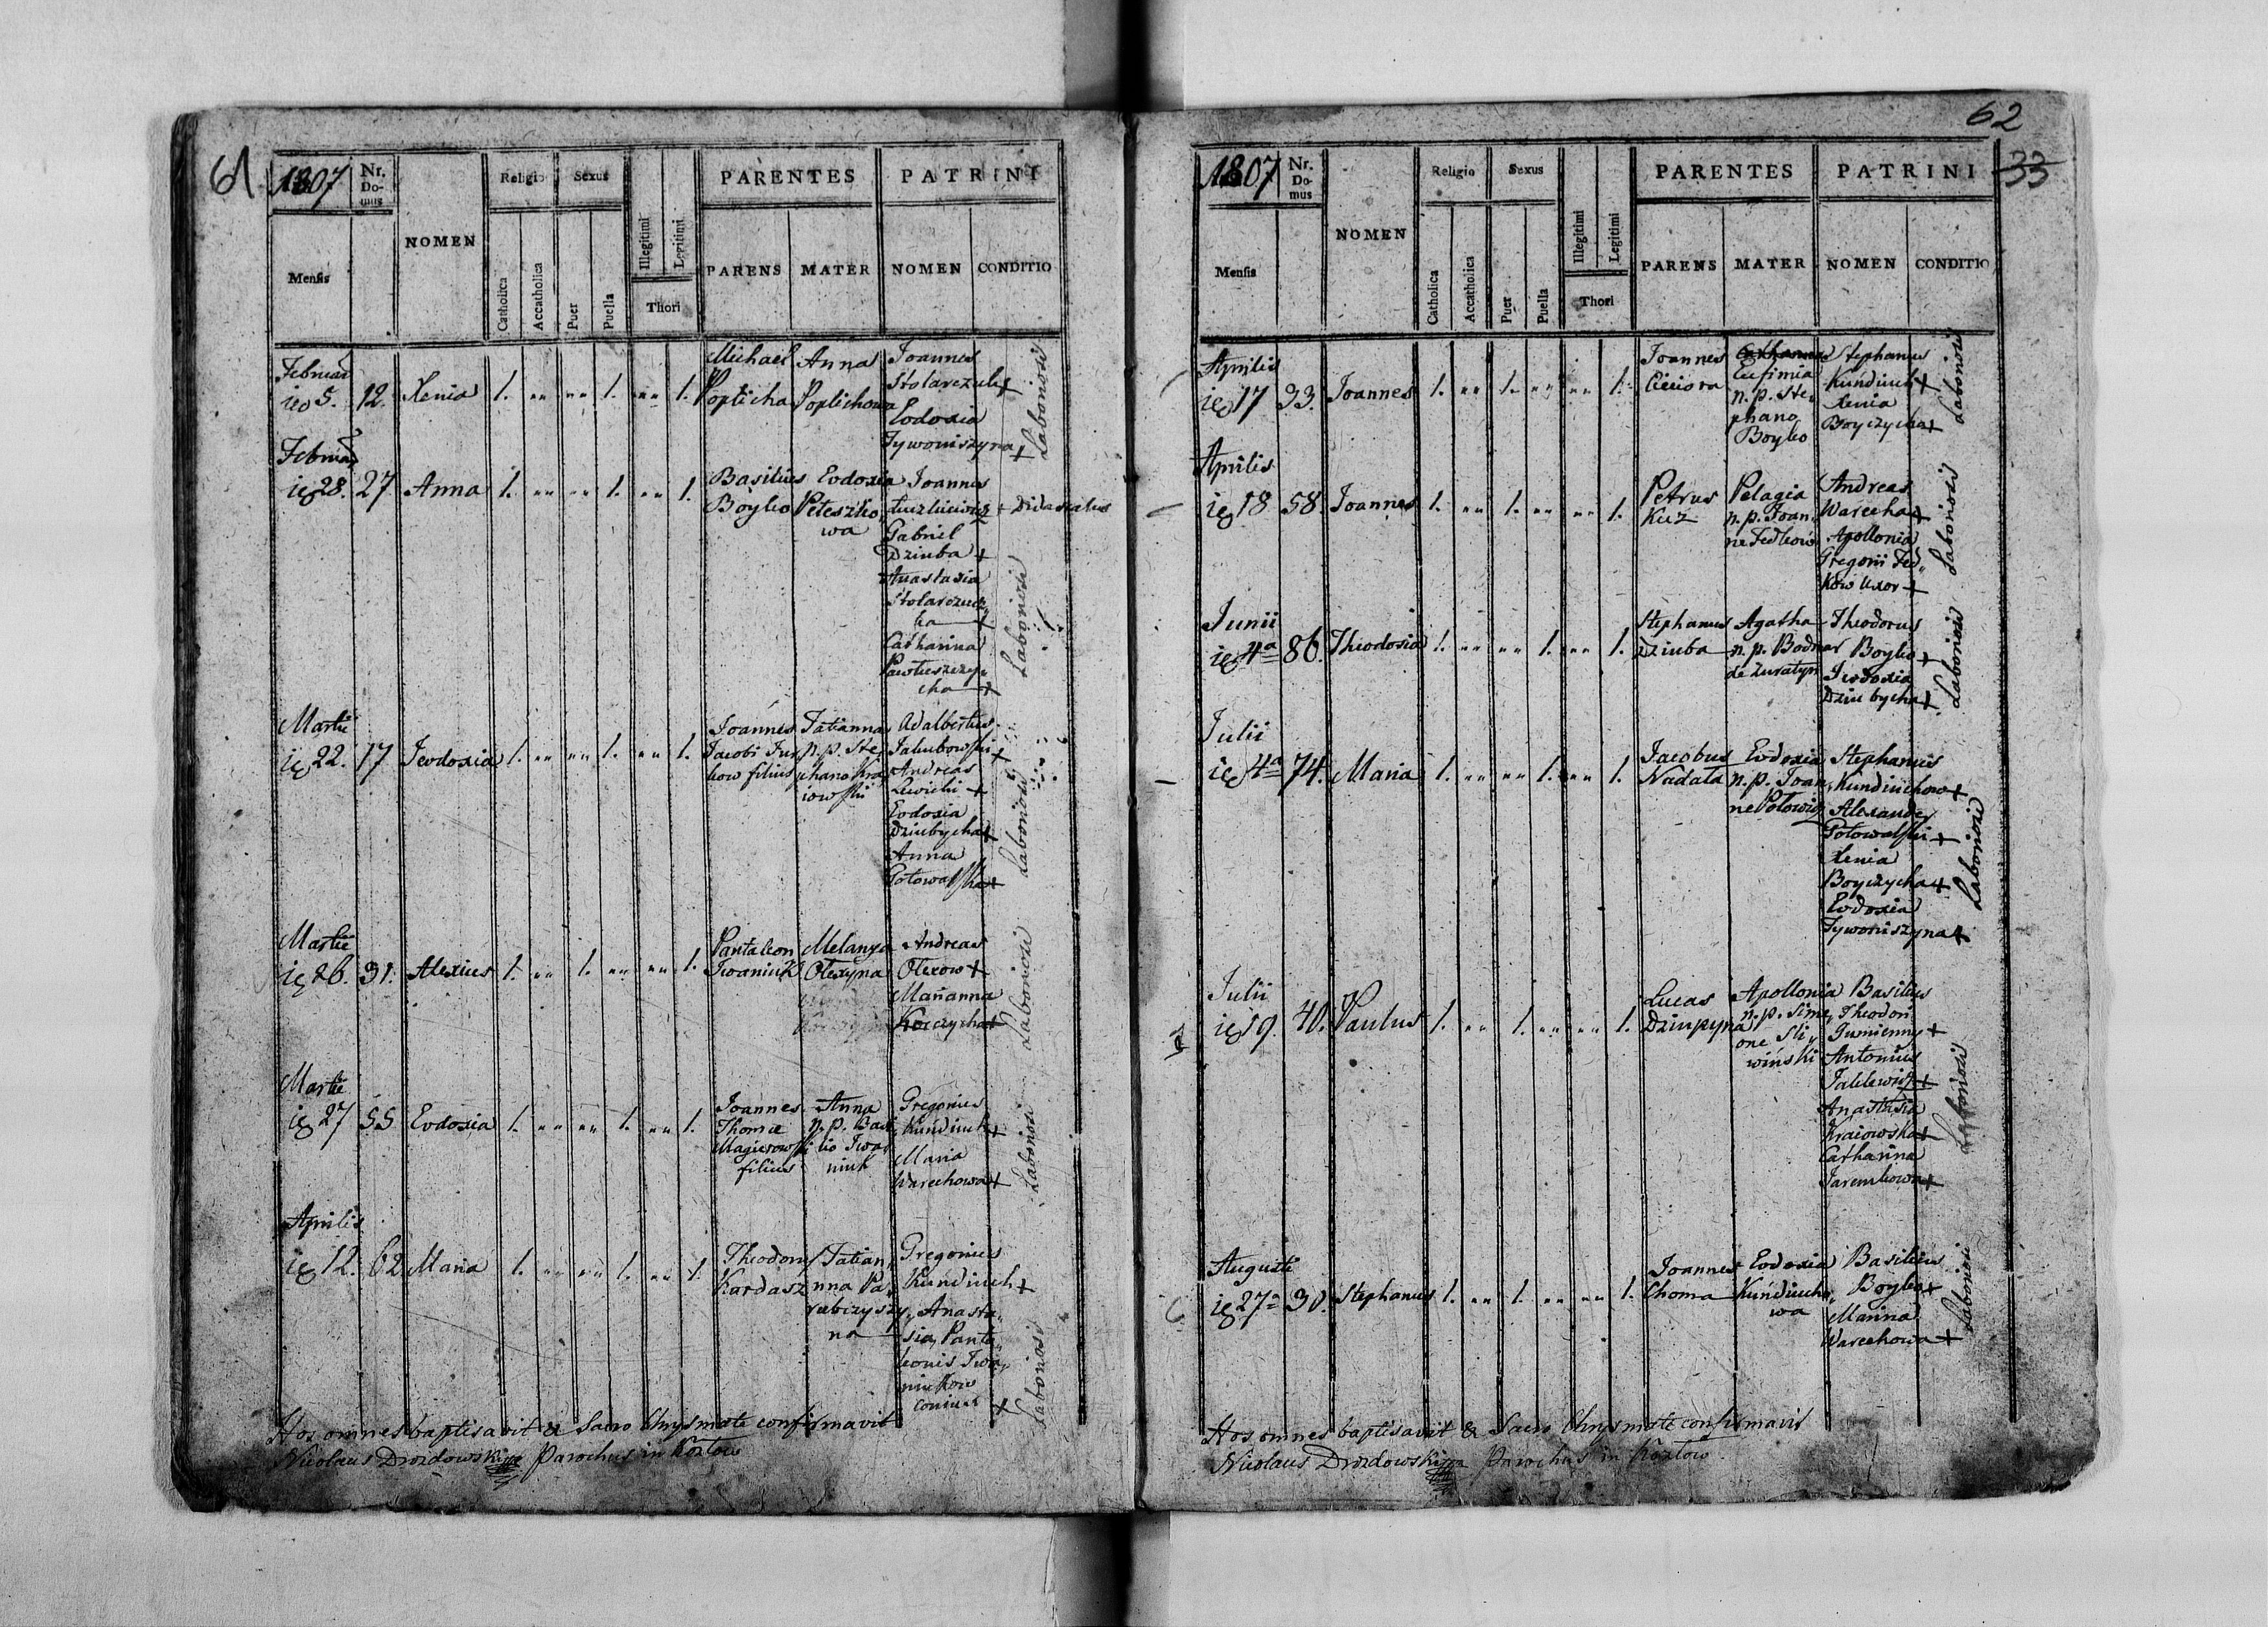 61
1807
Nr. Domus
NOMEN
Religio
Sexus
PARENTES
PATRINI
Mensis
Catholica
Accatholica
Puer
Puella
Illegitimi
Legitimi
Thori
PARENS
MATER
NOMEN
CONDITIO
Februar
5. 12. Xenia 1. „ „ 1. „ 1.
Michael
Popticha
Anna
Poptichowa
Joannes
Stolarczuk +
Eodoxia
Tywoniszyna +
Laboriosi
Februar
28. 27 Anna 1. „ „ 1. „ 1.
Basilius
Boyko
Eodoxia
Peteszko
wa
Joannes
+ Didascalus
Gabriel
Dziuba +
Anastasia
Stolarczuc„
ka +
Catharina
Pawluszczy„
cha +
Laboriosi
Martii
22. 17 Jewdoxia 1. „ „ 1. „ 1.
Joannes
Jacobi Fur„
kow filius
Tatianna
n. p. Ste„
phano Kra„
iowski
Adalbertus
Jakubowski +
Andreas
Lewicki +
Eodoxia
Dziubycha +
Anna
Gołowalska +
Laboriosi
Martii
26. 31. Alexius 1. „ 1. „ „ 1.
Pantaleon
Iwaniuk
Melanya
Olexyna
Andreas
Olexow +
Marianna
Korczycha +
Laboriosi
Martii
27 55 Eodoxia 1. „ „ 1. „ 1.
Joannes
Thomæ
Magierowski
filius
Anna
n. p. Basi„
lio Iwa„
niuk
Gregorius
Kundiuk +
Maria
Warechowa +
Laboriosi
Aprilis
12. 62 Maria 1. „ „ 1. „ 1.
Theodorus
Kardasz
Tatian„
nna Pa„
rubczyszy„
na
Gregorius
Kundiuch +
Anasta„
sia, Panta„
leonis Iwa„
niukow
coniux +
Laboriosi
Hos omnes baptisavit & Sacro Chrysmate confirmavit
Nicolaus Drozdowski Parochus in Kozłow
62
33
1807
Nr. Domus
NOMEN
Religio
Sexus
PARENTES
PATRINI
Mensis
Catholica
Accatholica
Puer
Puella
Illegitimi
Legitimi
Thori
PARENS
MATER
NOMEN
CONDITIO
Aprilis
17 33. Joannes 1. „ 1. „ „ 1.
Joannes
Ciciora
Eufimia
n. p. Ste„
phano
Boyko
Stephanus
Kundiuk +
Xenia
Boyczycha +
Laboriosi
Aprilis
18 58. Joannes 1. „ 1. „ „ 1.
Petrus
Kuz
Pelagia
n. p. Joan„
ne Fedkow
Andreas
Warecha +
Apollonia
Gregorii Fed„
kow Uxor +
Laboriosi
Junii
4a 86. Theodosia 1. „ „ 1. „ 1.
Stephanus
Dziuba
Agatha
n. p. Bodnar
de Zuratyn
Theodorus
Boyko +
Jewdoxia
Dziubycha +
Laboriosi
Julii
4a 74. Maria 1. „ „ 1. „ 1.
Jacobus
Nadala
Eodoxia
n. p. Joan„
ne Połowicz
Stephanus
Kundiuchow +
Alexander
Gołowalski +
Xenia
Boyczycha +
Eodoxia
Tywoniszyna +
Laboriosi
Julii
19. 40. Paulus 1. „ 1. „ „ 1.
Lucas
Dziupyna
Apollonia
n. p. Sime„
one Sli„
wiński
Basilius
Theodori
Gumienny +
Antonius
Anastasia
Kraiowska +
Catharina
Jaremkowa +
Laboriosi
Augusti
27a 30. Stephanus 1. „ 1. „ „ 1.
Joannes
Choma
Eodoxia
Kundiucho„
wa
Basilius
Boyko +
Marina
Warechowa +
Laboriosi
Hos omnes baptisavit & Sacro Chrysmate confirmavit
Nicolaus Drozdowski Parochus in Kozłow